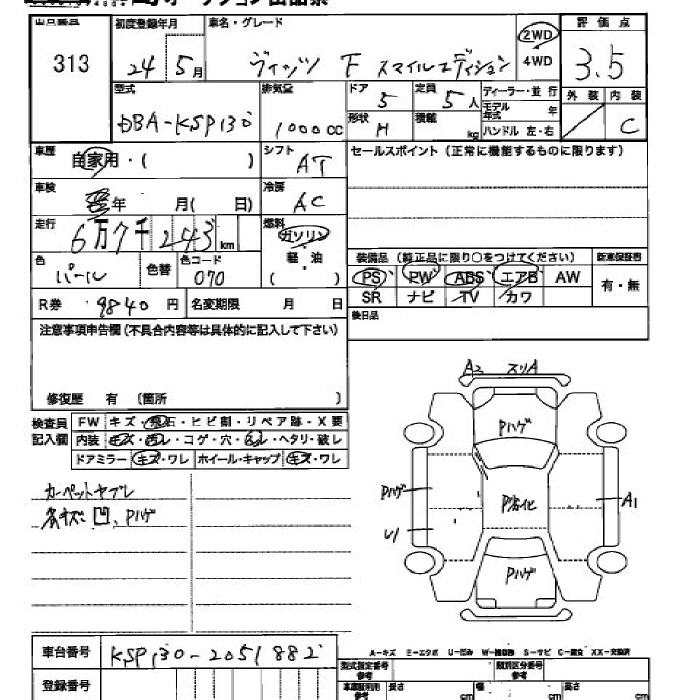 オークション出品票
出品番号 初度登録年月 車名・グレード 評価点
313 24 5月 ヴィッツ F スマイルエディション 2WD 4WD 3.5
型式 排気量 ドア 定員 ディーラー・並行 外装 内装
DBA-KSP130 1000cc 5 5人 モデル年式 年 C
形状 積載
H kg ハンドル 左・右
車歴 自家用・( ) シフト AT セールスポイント(正常に機能するものに限ります)
車検 年 月( 日) 冷房 AC
走行 6万7千243km 燃料 ガソリン
軽・油
( )
色 パール 色替 色コード 070
装備品(純正品に限り○をつけてください) 新車保証書
PS PW ABS エアB AW 有・無
SR ナビ TV カワ
R券 9840円 名変期限 月 日 後日品
注意事項申告欄(不具合内容等は具体的に記入して下さい)
修復歴 有 (箇所 )
検査員記入欄 FW キズ・飛石・ヒビ割・リペア跡・X要
内装 キズ・汚レ・コゲ・穴・ ・ヘタリ・破レ
ドアミラー キズ・ワレ ホイール・キャップ キズ・ワレ
カーペットヤブレ
各キズ凹、Pハゲ
A2 スリA
Pハゲ
Pハゲ
P劣化
A1
U1
Pハゲ
A-キズ E-エクボ U-凹み W-補修跡 S-サビ C-腐食 XX-交換済
車台番号 KSP130-2051882
型式指定番号 参考 類別区分番号 参考
登録番号
車庫証明用 参考 長さ cm 幅 cm 高さ cm